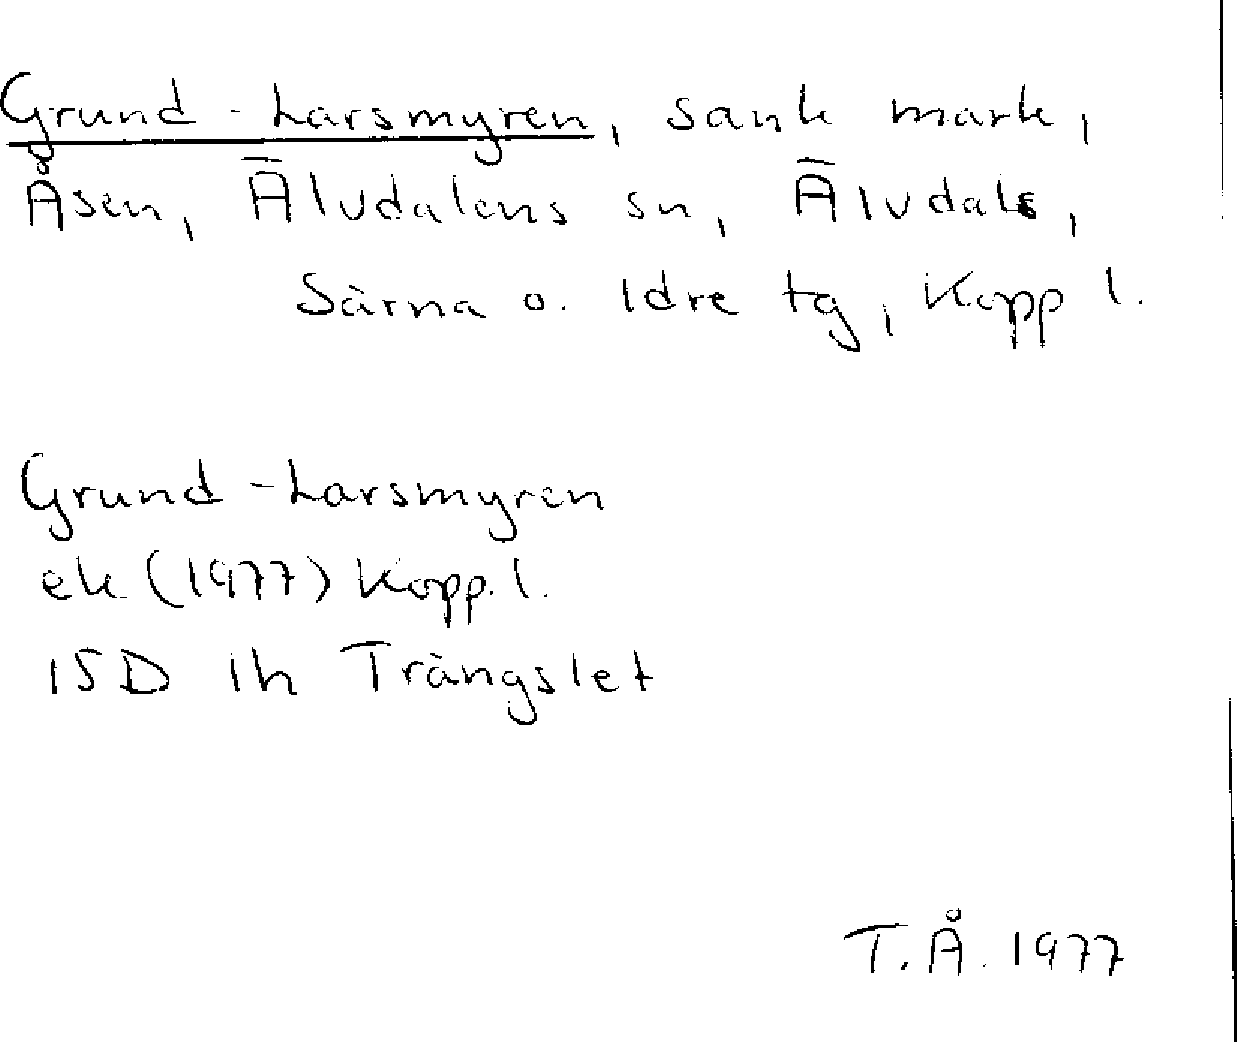 Grund-Larsmyren, sank mark,
Åsen, Älvdalens sn, Älvdals,
Särna o. Idre tg, Kopp l.
Grund-Larsmyren
ek (1977) Kopp. l.
15D 1h Trängslet
T.Å. 1977